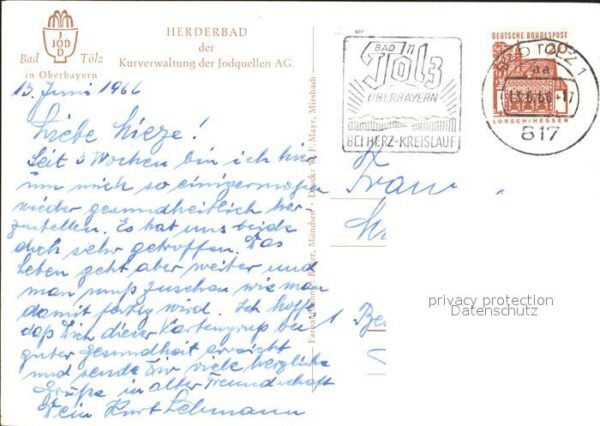 HERDERBAD
der
Kurverwaltung der Jodquellen AG.
JOD
Bad Tölz
in Oberbayern
13. Juni 1966
Liebe Mieze!
Seit 3 Wochen bin ich hier
um mich so einigermaßen
wieder gesundheitlich her-
zustellen. Es hat uns beide
doch sehr getroffen. Das
Leben geht aber weiter und
man muß zuschauen wie man
damit fertig wird. Ich hoffe
daß Dich dieser Kartengruß bei
guter Gesundheit erreicht
und sende Dir viele herzliche
Grüße in alter Freundschaft
Dein Kurt Lehmann
München - Druck: F. Mayr, Miesbach
BAD
in
Tölz
OBERBAYERN
BEI HERZ-KREISLAUF
DEUTSCHE BUNDESPOST
LORSCH/HESSEN
BAD TÖLZ 1
aa
13.6.66-17
817
Frau
privacy protection
Datenschutz